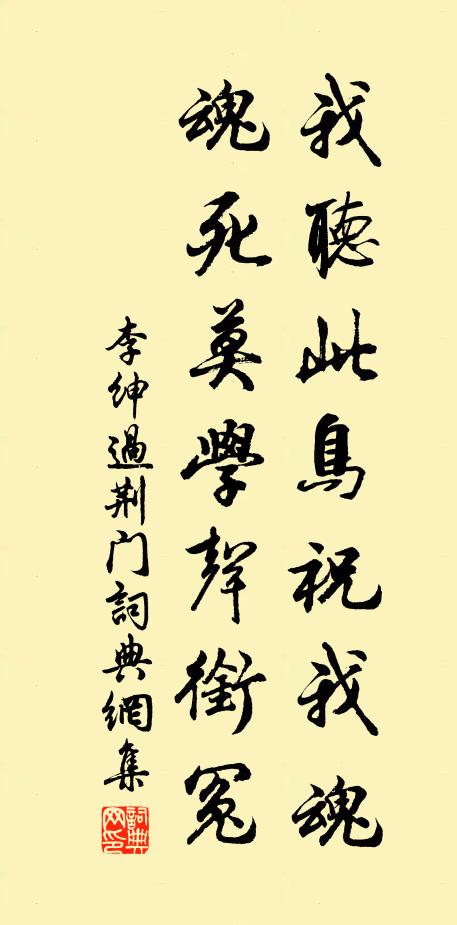 我聽此鳥祝我魂
魂死莫學聲銜冤
李紳過荆门詞典網集
詞典网印